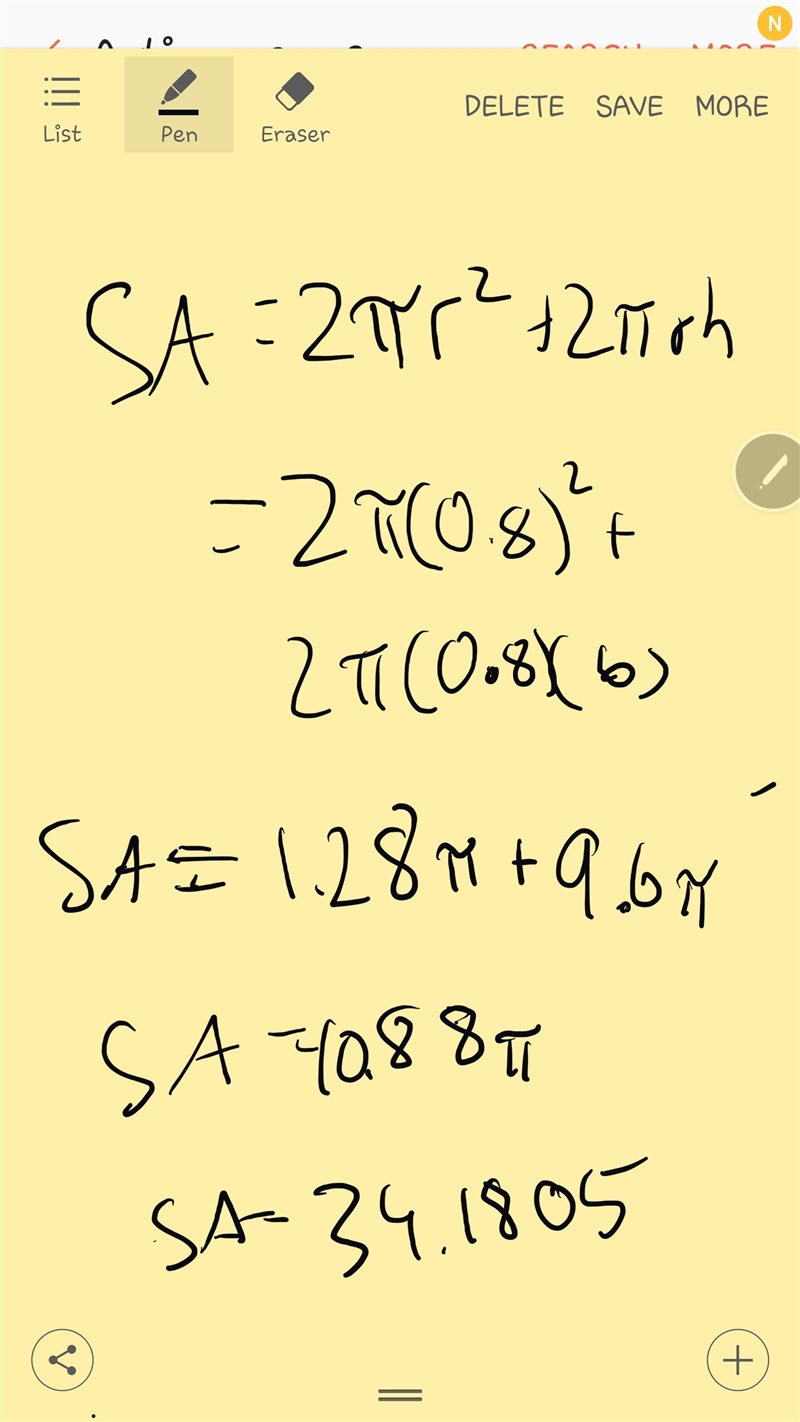 N
List
Pen
Eraser
DELETE SAVE MORE
SA = 2πr² + 2πrh
= 2π(0.8)² +
2π(0.8)(6)
SA = 1.28π + 9.6π
SA = 10.88π
SA = 34.1805